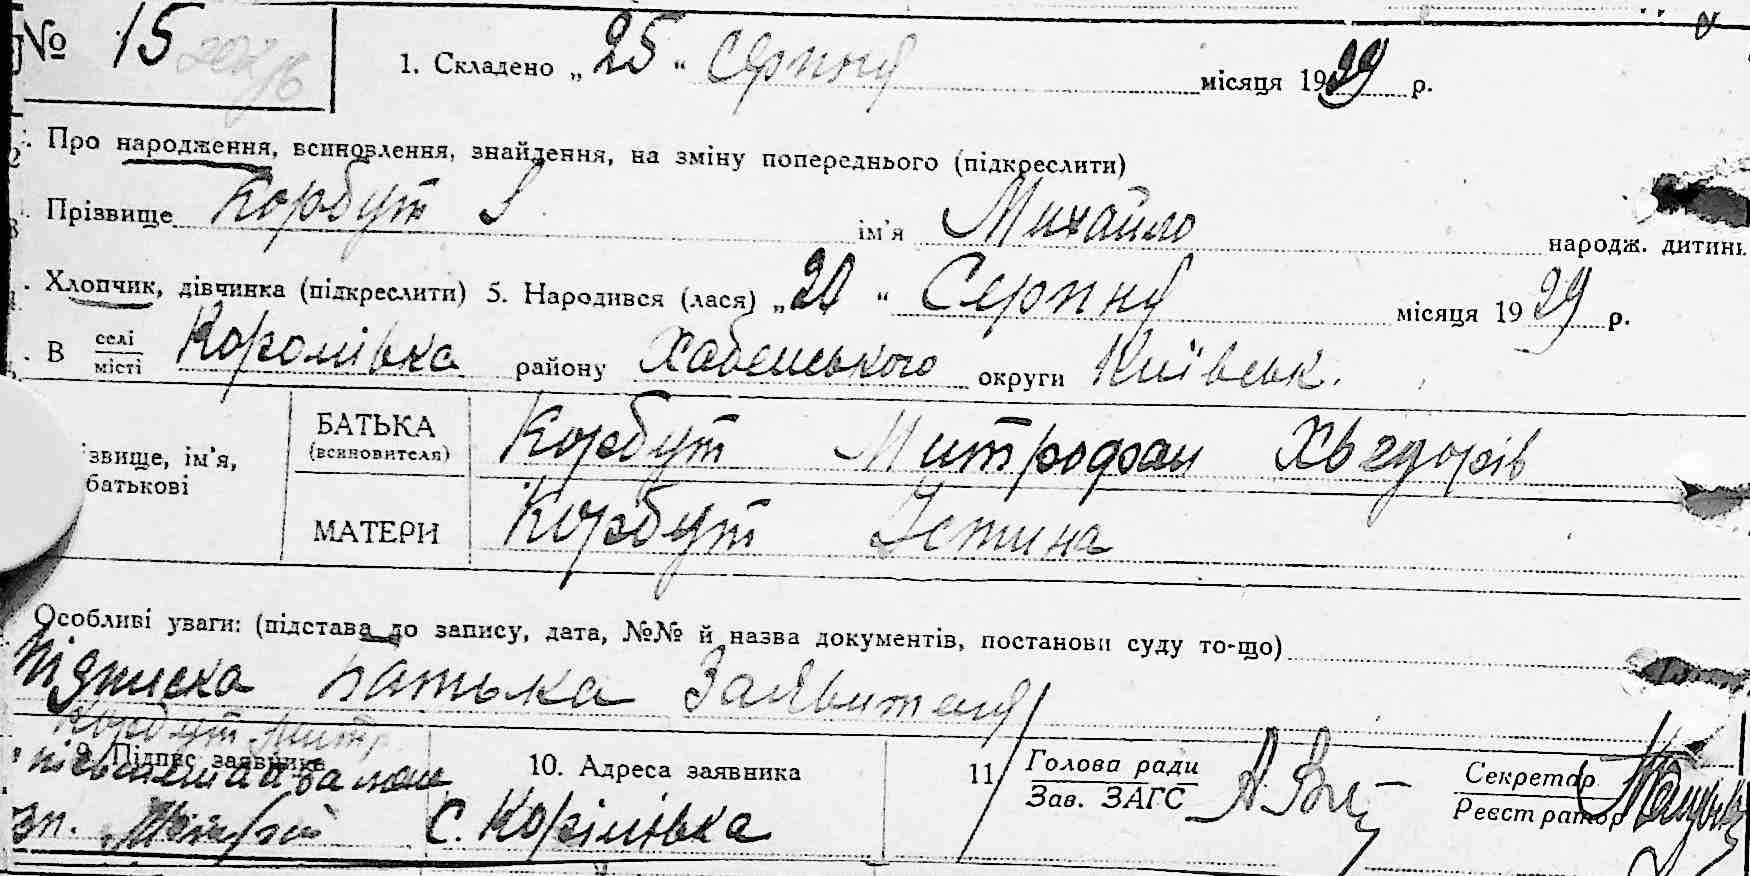 № 15
1. Складено „25“ Серпня місяця 1929 р.
Про народження, всиновлення, знайдення, на зміну попереднього (підкреслити)
Прізвище Корбут ім'я Михайло народж. дитини
Хлопчик, дівчинка (підкреслити) 5. Народився (лася) „20“ Серпня місяця 1929 р.
В селі Королівка району Хабенського округи Київськ.
місті
БАТЬКА Корбут Митрофан Хведорів
(всиновителя)
звище, ім'я,
батькові
МАТЕРИ Корбут Устина
Особливі уваги: (підстава до запису, дата, №№ й назва документів, постанови суду то-що)
Підписка батька Заявителя
Корбут Митр
9. Підпис заявника 10. Адреса заявника 11 Голова ради Секретар
Зав. ЗАГС Реєстратор
с. Корілівка